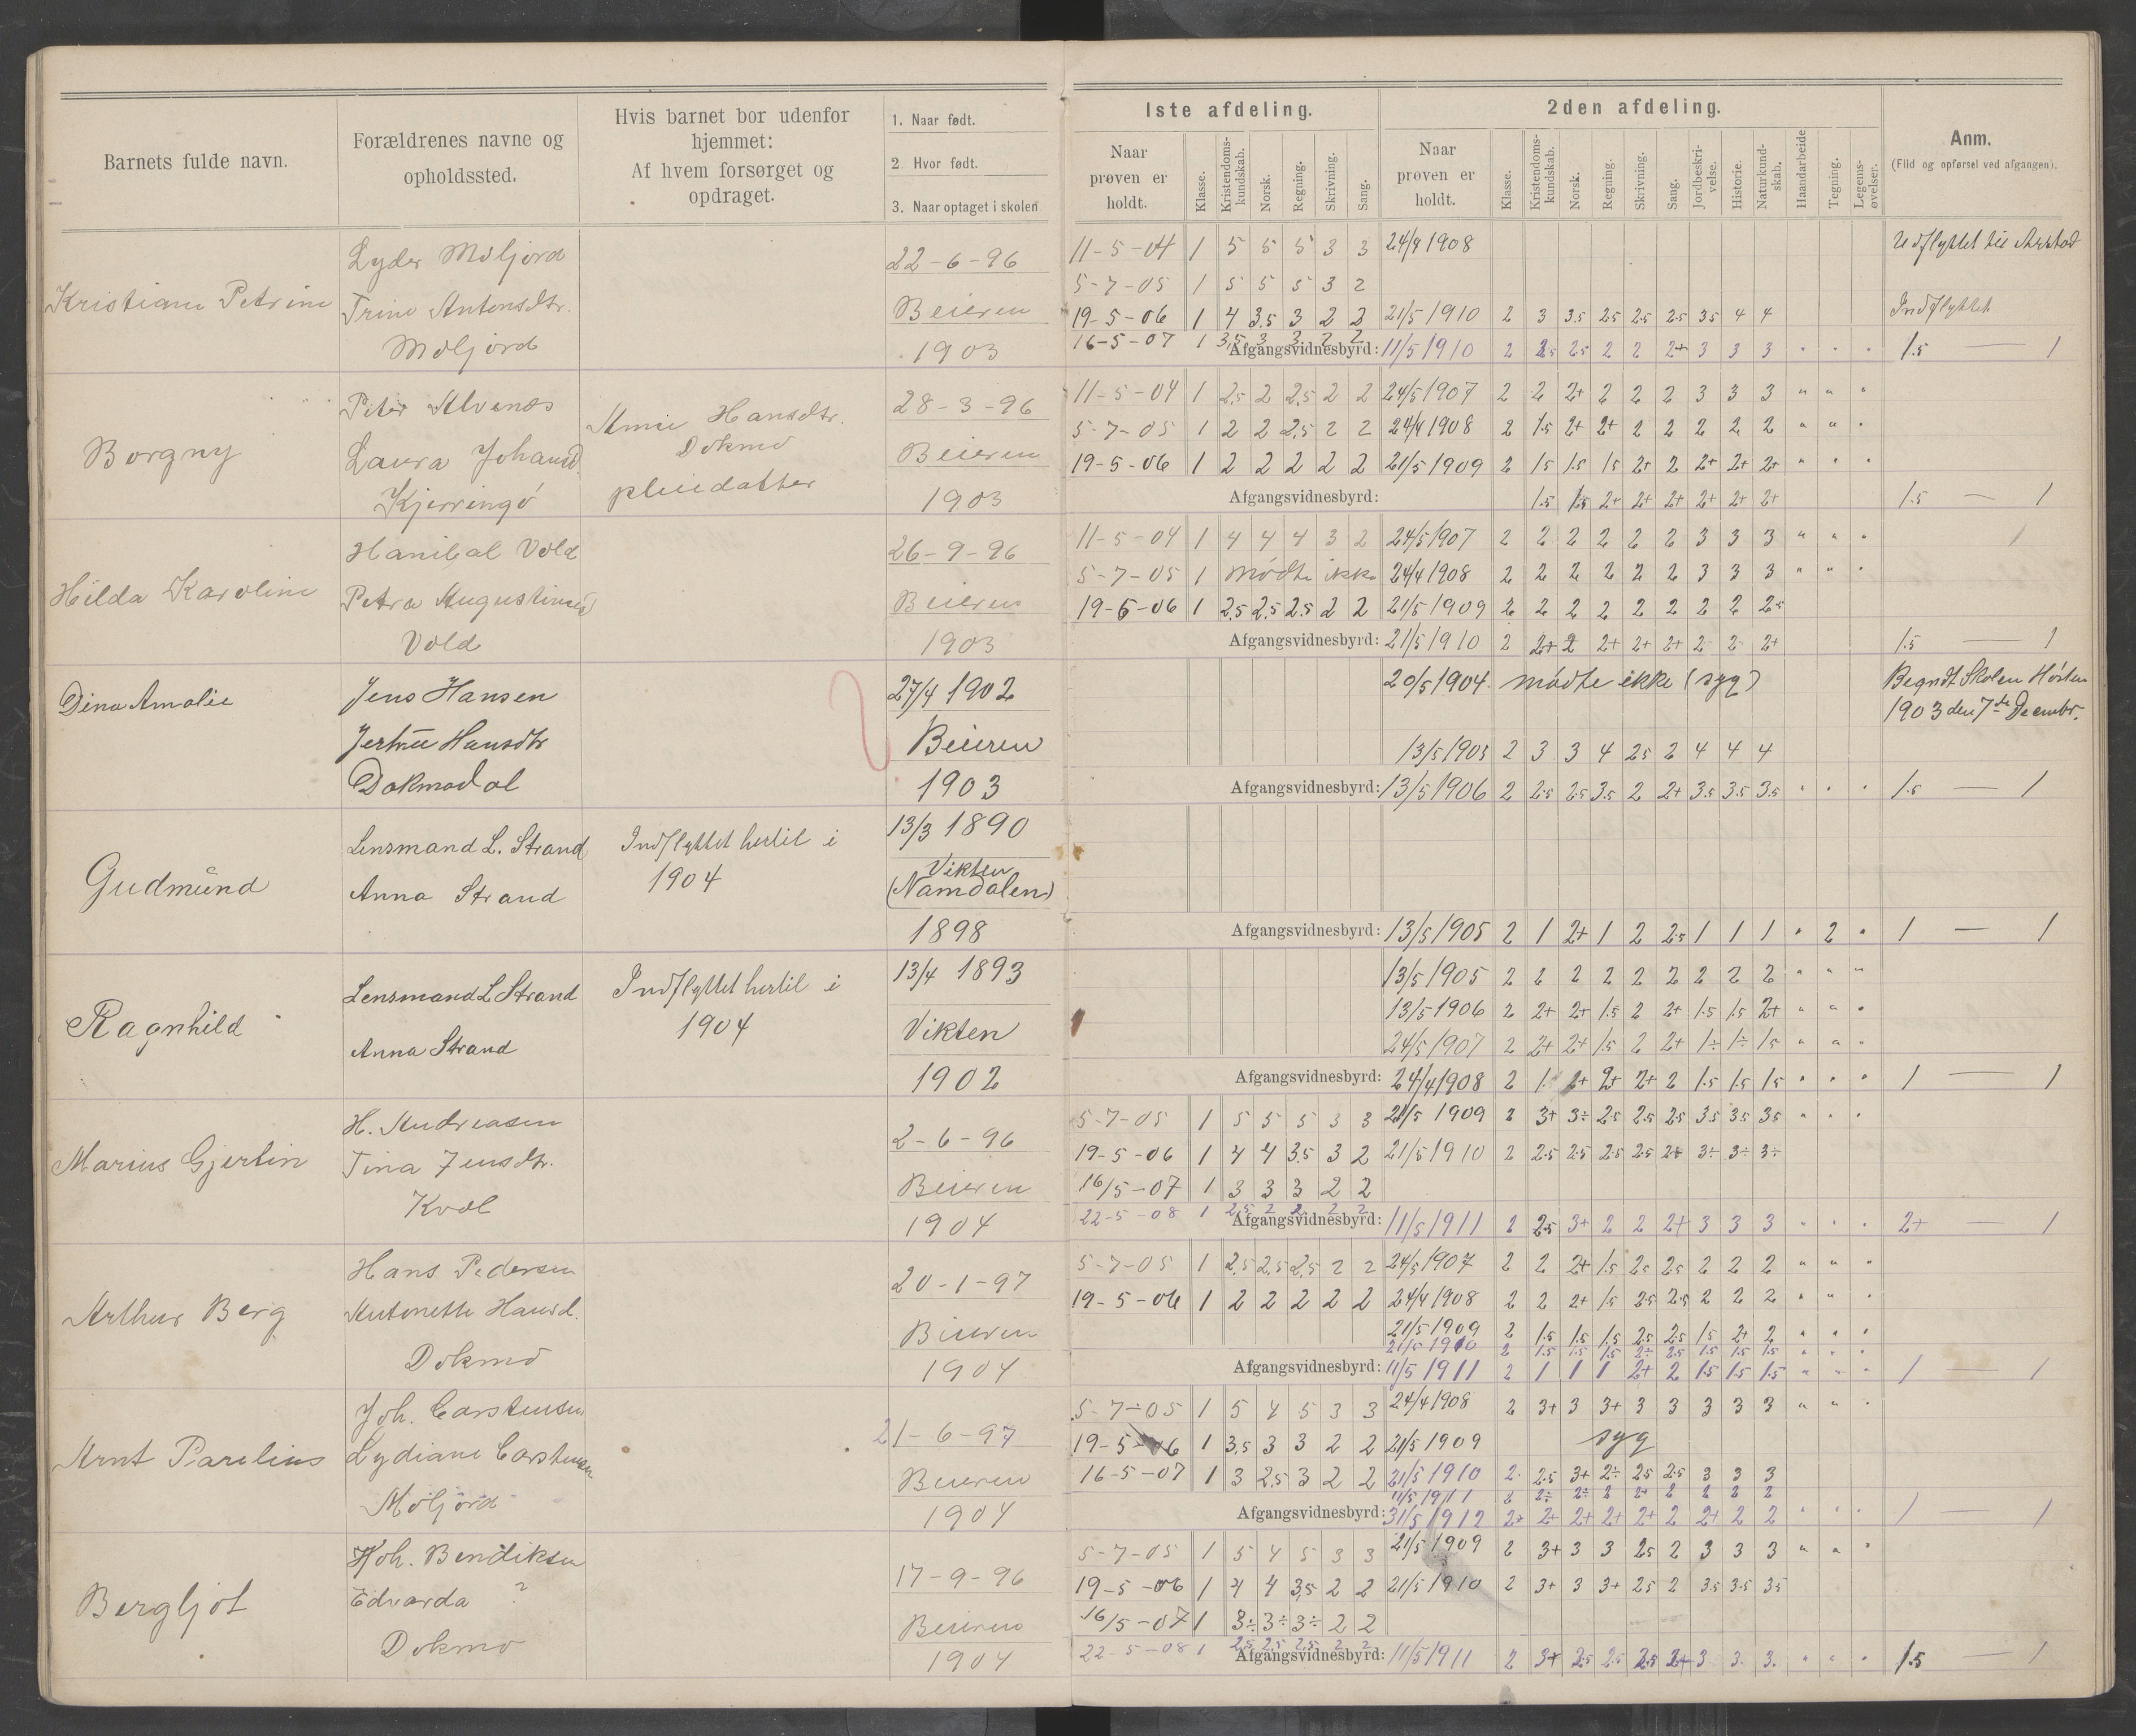 Barnets fulde navn.
Forældrenes navne og
opholdssted.
Hvis barnet bor udenfor
hjemmet:
Af hvem forsørget og
opdraget.
1. Naar født.
2. Hvor født.
3. Naar optaget i skolen
Iste afdeling.
Naar
prøven er
holdt.
Klasse.
Kristendoms-
kundskab.
Norsk.
Regning.
Skrivning.
Sang.
2den afdeling.
Naar
prøven er
holdt.
Klasse.
Kristendoms-
kundskab.
Norsk.
Regning.
Skrivning.
Sang.
Jordbeskri-
velse.
Historie.
Naturkund-
skab.
Haandarbeide
Tegning.
Legems-
øvelser.
Anm.
(Flid og opførsel ved afgangen).
Kristiane Petrine
Lyder Moljord
Trine Antonsdtr.
Moljord
22-6-96
Beieren
1903
11-5-04 1 5 5 5 3 3 24/4 1908 Udflyttet til Arstad
5-7-05 1 5 5 5 3 2
19-5-06 1 4 3.5 3 2 2 21/5 1910 2 3 3.5 2.5 2.5 2.5 3.5 4 4 Indflyttet
16-5-07 1 3,5 3 3 2 2
Afgangsvidnesbyrd: 11/5 1910 2 2.5 2.5 2 2 2+ 3 3 3 1.5 — 1
Borgny
Peter Alvenes
Laura Johansd
Kjerringö
Hansdtr.
Dokmo
pleiedatter
28-3-96
Beieren
1903
11-5-04 1 2,5 2 2,5 2 2 24/5 1907 2 2 2+ 2 2 2 3 3 3 " " "
5-7-05 1 2 2 2,5 2 2 24/4 1908 2 1.5 2+ 2+ 2 2 2 2 2 " " "
19-5-06 1 2 2 2 2 2 21/5 1909 2 1.5 1.5 1.5 2+ 2 2+ 2+ 2+ " " "
Afgangsvidnesbyrd: 1.5 1.5 2+ 2+ 2+ 2+ 2+ 2+ 1.5 — 1
Hilda Karoline
Hanibal Vold
Petra Augustinsd
Vold
26-9-96
Beieren
1903
11-5-04 1 4 4 4 3 2 24/5 1907 2 2 2 2 2 2 3 3 3 " " " 1
5-7-05 1 mödte ikke 24/4 1908 2 2 2 2 2 2 3 3 3 " " "
19-5-06 1 2,5 2,5 2,5 2 2 21/5 1909 2 2 2 2 2 2 2 2 2.5
Afgangsvidnesbyrd: 21/5 1910 2 2+ 2 2+ 2+ 2+ 2 2 2+ 1.5 — 1
Dina Amalie
Jens Hansen
Hansdtr
Dokmodal
27/4 1902
Beieren
1903
20/5 1904. mödte ikke (syg)
Begndt Skolen Hösten
1903 den 7de Decembr.
13/5 1905 2 3 3 4 2.5 2 4 4 4
Afgangsvidnesbyrd: 13/5 1906 2 2.5 2.5 3.5 2 2+ 3.5 3.5 3.5 " " " 1.5 — 1
Gudmund
Lensmand L. Strand
Anna Strand
Indflyttet hertil i
1904
13/3 1890
Vikten
(Namdalen)
1898
Afgangsvidnesbyrd: 13/5 1905 2 1 2+ 1 2 2.5 1 1 1 " 2 " 1 — 1
Ragnhild
Lensmand L Strand
Anna Strand
Indflyttet hertil i
1904
13/4 1893
Vikten
1902
13/5 1905 2 2 2 2 2 2 2 2 2 " " "
13/5 1906 2 2+ 2+ 1.5 2 2+ 1.5 1.5 2+ " " "
24/5 1907 2 2+ 2+ 1.5 2 2+ 1÷ 1÷ 1.5 " " "
Afgangsvidnesbyrd: 24/4 1908 2 1. 2+ 2+ 2+ 2 1.5 1.5 1.5 " " " 1 — 1
Marius Gjertin
H. Andreasen
Tina Jensdtr.
Kvæl
2-6-96
Beieren
1904
5-7-05 1 5 5 5 3 3 21/5 1909 2 3+ 3÷ 2.5 2.5 2.5 3.5 3.5 3.5 " " "
19-5-06 1 4 4 3.5 3 2 21/5 1910 2 2.5 2.5 2.5 2.5 2+ 3÷ 3÷ 3÷
16/5-07 1 3 3 3 2 2
22-5-08 1 2,5 2 2 2 2
Afgangsvidnesbyrd: 11/5 1911 2 2.5 3+ 2 2 2+ 3 3 3 " " " 2+ — 1
Arthur Berg
Hans Pedersen
Antonette Hansd.
Dokmo
20-1-97
Beieren
1904
5-7-05 1 2,5 2,5 2,5 2 2 24/5 1907 2 2 2+ 1.5 2.5 2.5 2 2 2 " " "
19-5-06 1 2 2 2 2 2 24/4 1908 2 2 2+ 1.5 2.5 2.5 2 2 2 " " "
21/5 1909 2 1.5 1.5 1.5 2.5 2.5 1.5 2+ 2 " " "
21/5 1910 2 1.5 1.5 1.5 2÷ 2.5 1.5 1.5 1.5 " " "
Afgangsvidnesbyrd: 11/5 1911 2 1 1 1 2+ 2 1.5 1.5 1.5 " " " 1 — 1
Arnt Parelius
Joh. Carstensen
Lydiane Carstensen
Moljord
21-6-97
Beieren
1904
5-7-05 1 5 4 5 3 3 24/4 1908 2 3+ 3 3+ 3 3 3 3 3 " " "
19-5-06 1 3,5 3 3 2 2 21/5 1909 syg
16-5-07 1 3 2,5 3 2 2 21/5 1910 2 2.5 3+ 2÷ 2.5 2.5 3 3 3
11/5 1911 2 2÷ 2÷ 2 2+ 2 2 2 2
Afgangsvidnesbyrd: 31/5 1912 2+ 2+ 2+ 2+ 2+ 2 2+ 2 2 " " " 1 — 1
Bergljot
Joh. Bendiksen
Edvarda ?
Dokmo
17-9-96
Beieren
1904
5-7-05 1 5 4 5 3 3 21/5 1909 2 3+ 3 3 2.5 2 3 3 3 " " "
19-5-06 1 4 4 3,5 2 2 21/5 1910 2 3+ 3 3+ 2.5 2 3.5 3.5 3.5
16/5-07 1 3÷ 3÷ 3÷ 2 2
22-5-08 1 2,5 2,5 2,5 2 2
Afgangsvidnesbyrd: 11/5 1911 2 3+ 2.5 2.5 2.5 2+ 3 3. 3. " " " 1.5 — 1